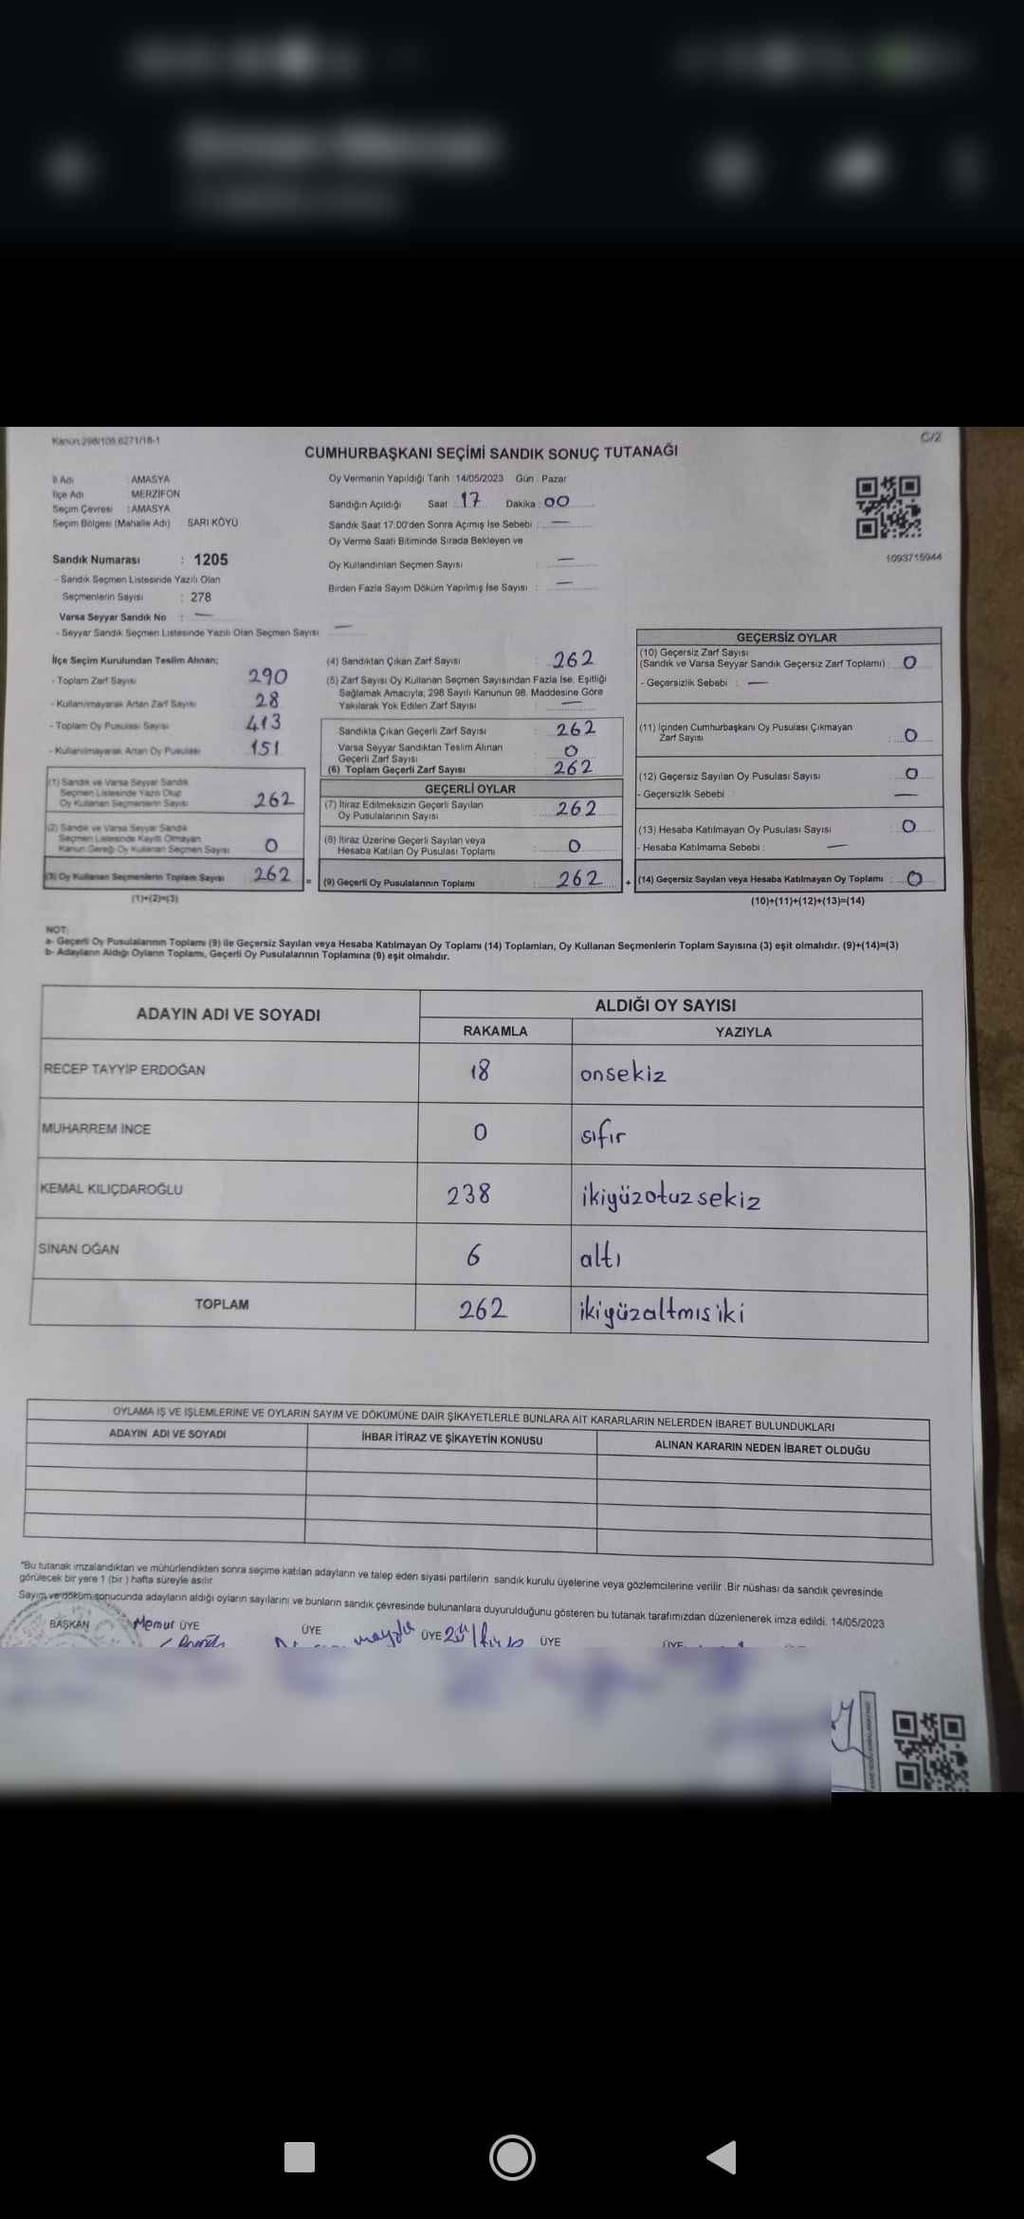 Kanun:298/105,6271/18-1
C/2
CUMHURBAŞKANI SEÇİMİ SANDIK SONUÇ TUTANAĞI
İl Adı AMASYA
İlçe Adı MERZİFON
Seçim Çevresi : AMASYA
Seçim Bölgesi (Mahalle Adı) SARI KÖYÜ
Sandık Numarası : 1205
- Sandık Seçmen Listesinde Yazılı Olan
Seçmenlerin Sayısı : 278
Varsa Seyyar Sandık No : —
- Seyyar Sandık Seçmen Listesinde Yazılı Olan Seçmen Sayısı —
Oy Vermenin Yapıldığı Tarih 14/05/2023 Gün : Pazar
Sandığın Açıldığı Saat 17 Dakika : 00
Sandık Saat 17.00'den Sonra Açımış İse Sebebi : —
Oy Verme Saati Bitiminde Sırada Bekleyen ve
Oy Kullandırılan Seçmen Sayısı : —
Birden Fazla Sayım Döküm Yapılmış İse Sayısı : —
1093715944
İlçe Seçim Kurulundan Teslim Alınan;
- Toplam Zarf Sayısı 290
- Kullanılmayarak Artan Zarf Sayısı 28
- Toplam Oy Pusulası Sayısı 413
- Kullanılmayarak Artan Oy Pusulası 151
(1) Sandık ve Varsa Seyyar Sandık
Seçmen Listesinde Yazılı Olup
Oy Kullanan Seçmenlerin Sayısı 262
(2) Sandık ve Varsa Seyyar Sandık
Seçmen Listesinde Kayıtlı Olmayan
Kanun Gereği Oy Kullanan Seçmen Sayısı 0
(3) Oy Kullanan Seçmenlerin Toplam Sayısı 262 =
(1)+(2)=(3)
(4) Sandıktan Çıkan Zarf Sayısı : 262
(5) Zarf Sayısı Oy Kullanan Seçmen Sayısından Fazla İse, Eşitliği
Sağlamak Amacıyla; 298 Sayılı Kanunun 98. Maddesine Göre
Yakılarak Yok Edilen Zarf Sayısı —
Sandıkta Çıkan Geçerli Zarf Sayısı : 262
Varsa Seyyar Sandıktan Teslim Alınan
Geçerli Zarf Sayısı 0
(6) Toplam Geçerli Zarf Sayısı 262
GEÇERLİ OYLAR
(7) İtiraz Edilmeksizin Geçerli Sayılan
Oy Pusulalarının Sayısı : 262
(8) İtiraz Üzerine Geçerli Sayılan veya
Hesaba Katılan Oy Pusulası Toplamı : 0
(9) Geçerli Oy Pusulalarının Toplamı : 262 +
GEÇERSİZ OYLAR
(10) Geçersiz Zarf Sayısı
(Sandık ve Varsa Seyyar Sandık Geçersiz Zarf Toplamı) : 0
- Geçersizlik Sebebi : —
(11) İçinden Cumhurbaşkanı Oy Pusulası Çıkmayan
Zarf Sayısı : 0
(12) Geçersiz Sayılan Oy Pusulası Sayısı : 0
- Geçersizlik Sebebi : —
(13) Hesaba Katılmayan Oy Pusulası Sayısı : 0
- Hesaba Katılmama Sebebi : —
(14) Geçersiz Sayılan veya Hesaba Katılmayan Oy Toplamı : 0
(10)+(11)+(12)+(13)=(14)
NOT:
a- Geçerli Oy Pusulalarının Toplamı (9) ile Geçersiz Sayılan veya Hesaba Katılmayan Oy Toplamı (14) Toplamları, Oy Kullanan Seçmenlerin Toplam Sayısına (3) eşit olmalıdır. (9)+(14)=(3)
b- Adayların Aldığı Oyların Toplamı, Geçerli Oy Pusulalarının Toplamına (9) eşit olmalıdır.
ADAYIN ADI VE SOYADI ALDIĞI OY SAYISI
RAKAMLA YAZIYLA
RECEP TAYYİP ERDOĞAN 18 onsekiz
MUHARREM İNCE 0 sıfır
KEMAL KILIÇDAROĞLU 238 ikiyüzotuzsekiz
SİNAN OĞAN 6 altı
TOPLAM 262 ikiyüzaltmışiki
OYLAMA İŞ VE İŞLEMLERİNE VE OYLARIN SAYIM VE DÖKÜMÜNE DAİR ŞİKAYETLERLE BUNLARA AİT KARARLARIN NELERDEN İBARET BULUNDUKLARI
ADAYIN ADI VE SOYADI İHBAR İTİRAZ VE ŞİKAYETİN KONUSU ALINAN KARARIN NEDEN İBARET OLDUĞU
*Bu tutanak imzalandıktan ve mühürlendikten sonra seçime katılan adayların ve talep eden siyasi partilerin sandık kurulu üyelerine veya gözlemcilerine verilir. Bir nüshası da sandık çevresinde
görülecek bir yere 1 (bir) hafta süreyle asılır
Sayım ve döküm sonucunda adayların aldığı oyların sayılarını ve bunların sandık çevresinde bulunanlara duyurulduğunu gösteren bu tutanak tarafımızdan düzenlenerek imza edildi. 14/05/2023
BAŞKAN Memur ÜYE ÜYE ÜYE ÜYE ÜYE